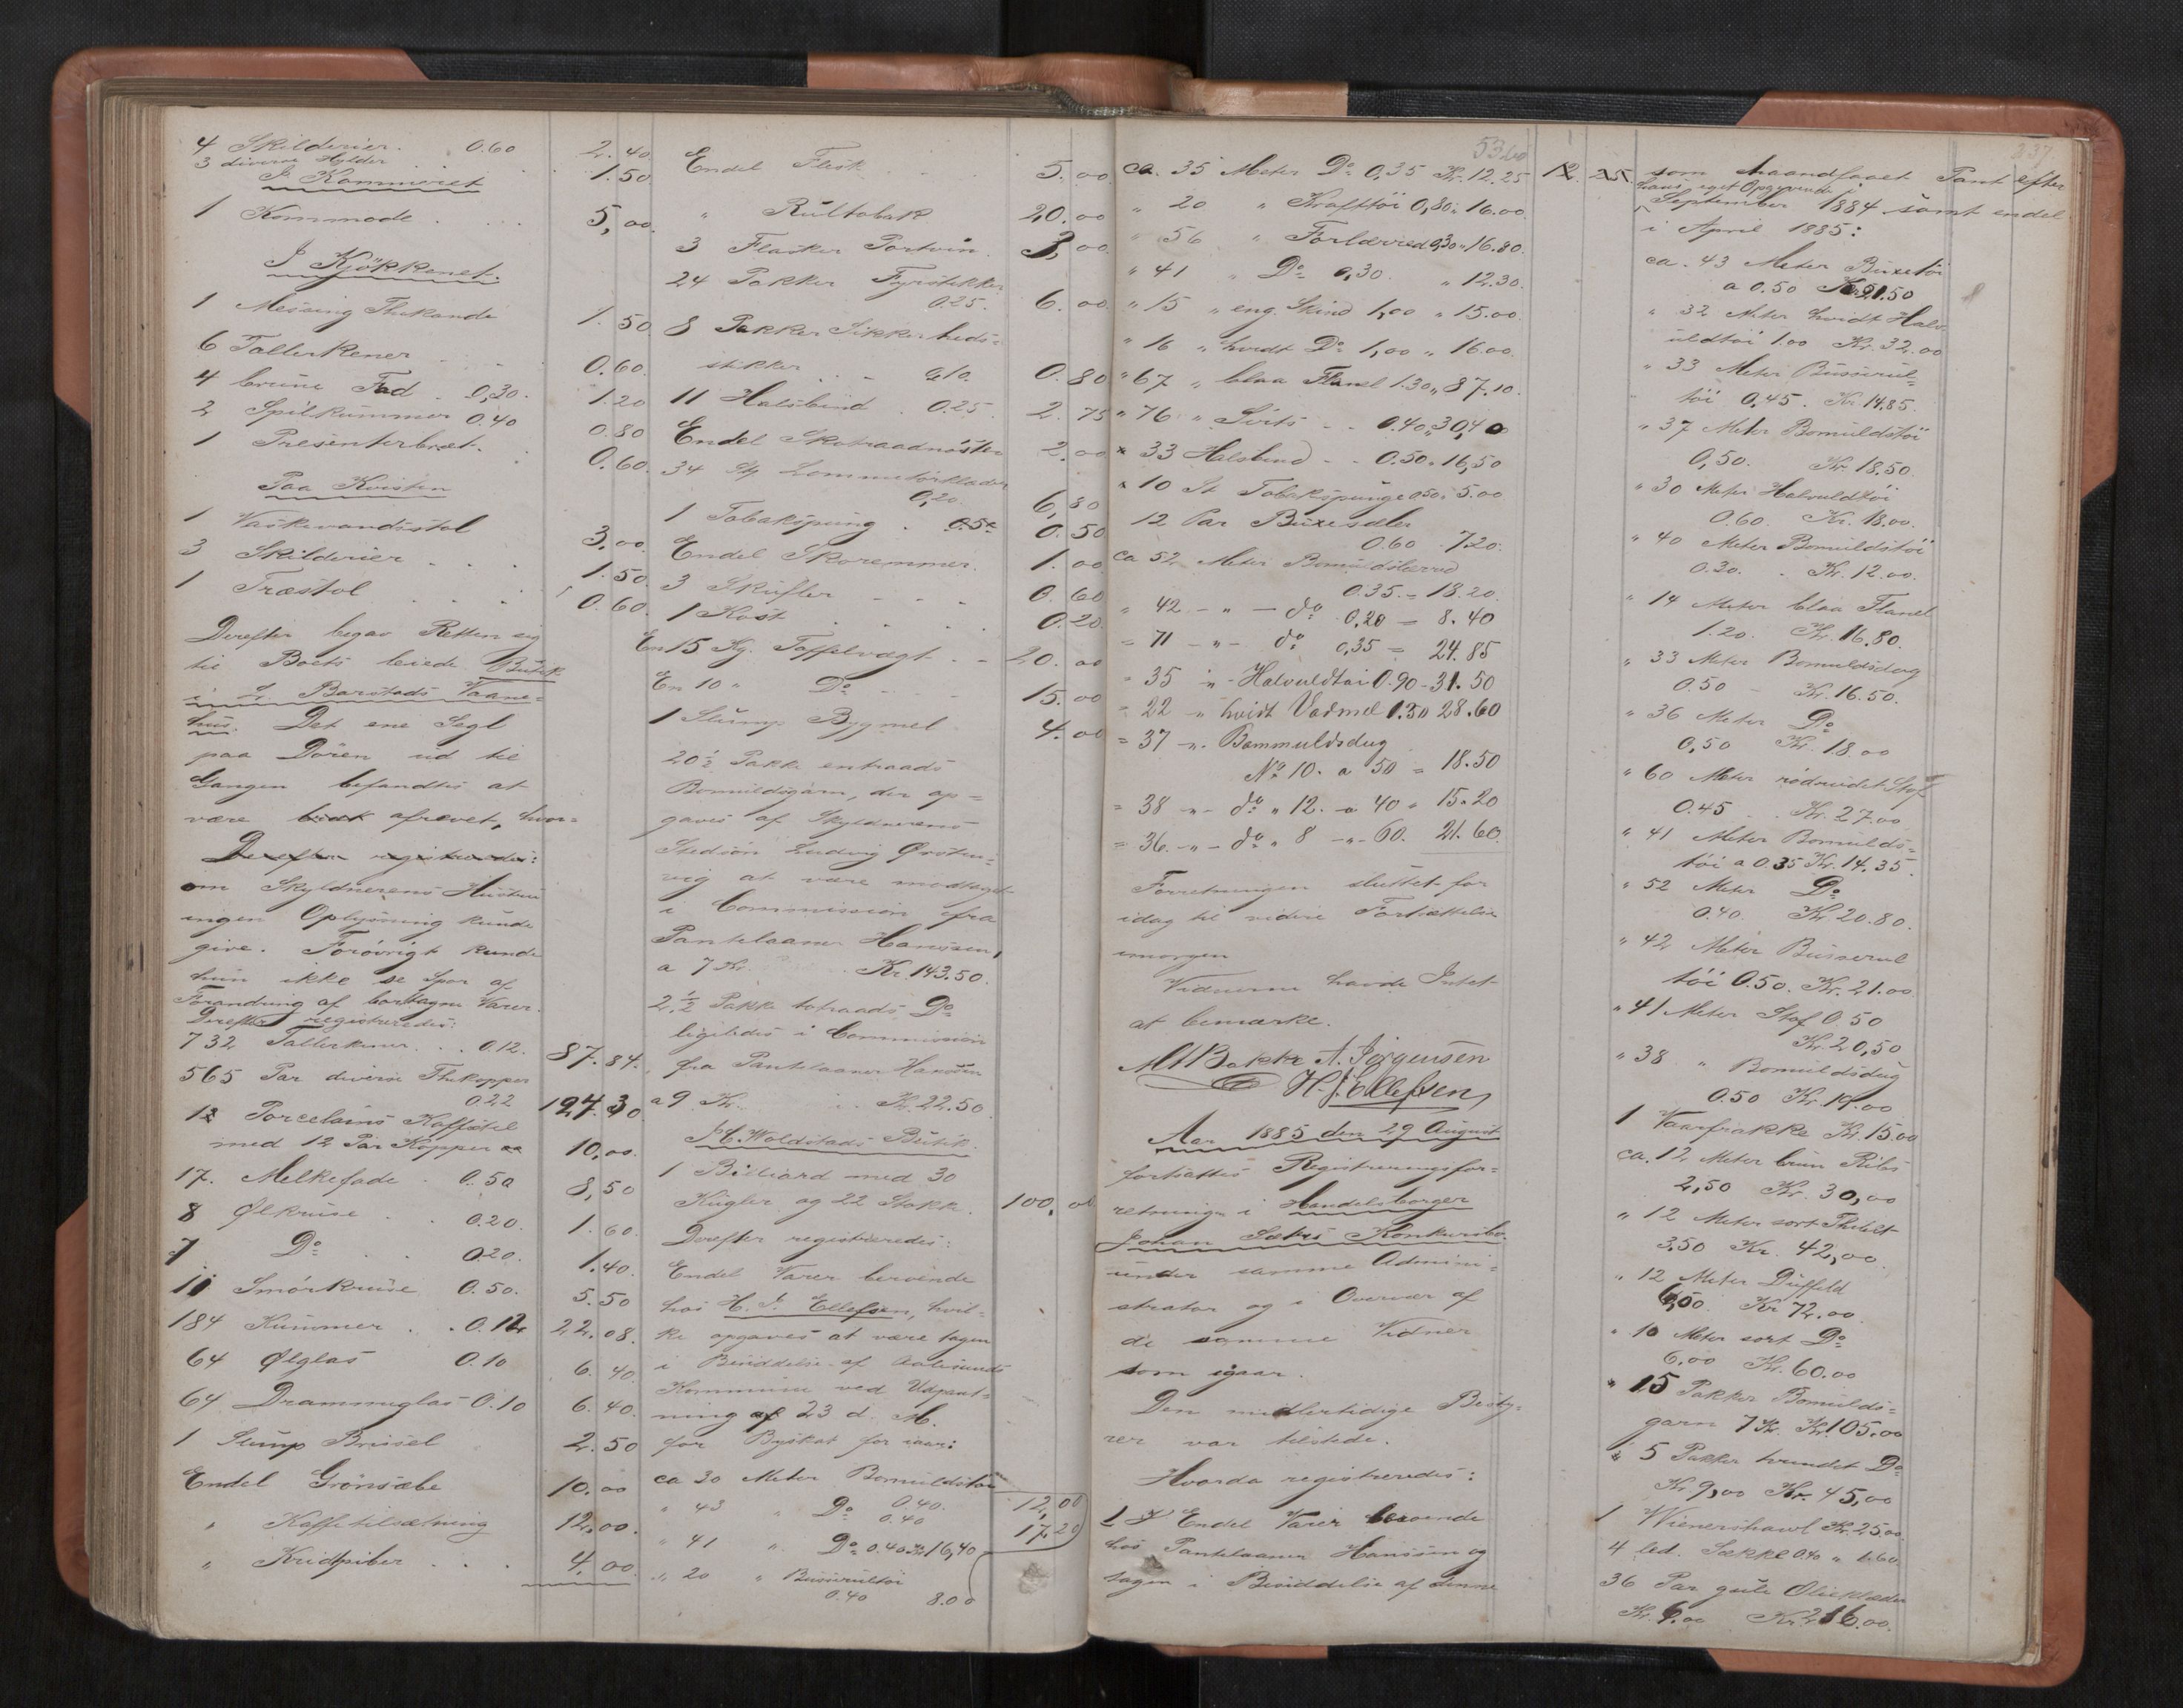 4 Skilderier. 0.60 2.40
3 diverse Hylder . . 1.50
I Kammeret
1 Kommode . . . 5,00
I Kjökkenet.
1 Messing Thekande 1.50
6 Tallerkener . . 0.60.
4 brune Fad . 0,30. 1.20
2 Spilkummer 0.40 0.80
1 Presenterbræt. . 0.60.
Paa Kvisten
1 Vaskevandsstol 3,00.
3 Skilderier . . . 1.50.
1 Træstol . . . 0.60.
Derefter begav Retten sig
til Boets leiede Butik
i J. Barstads Vaane-
hus. Det ene Segl
paa Dören ud til
Gangen befandtes at
være brudt afrevet, hvor-
Derefter registreredes:
om Skyldnerens Hustru
ingen Oplysning kunde
give. Forövrigt kunde
hun ikke se Spor af
Forandring af borttagne Varer.
Derefter registreredes:
732 Tallerkener . . 0.12. 87.84.
565 Par diverse Thekopper
0.22 124.30
12 Porcelains Kaffestel
med 12 Par Kopper 10,00.
17. Melkefade . 0.50 8,50
8 Ølkruse . . 0.20. 1.60.
7 Do . . 0.20. 1.40.
11 Smörkruse 0.50. 5.50
184 Kummer . . 0.12 22.08.
64 Ølglas 0.10 6.40.
64 Drammeglas 0.10 6.40.
1 Slump Brissel 2.50
Endel Grönsæbe 10.00
" Kaffetilsætning 12.00.
" Kridtpiber . . . 4,00.
Endel Flesk . . . 5.00
" Rultobak 20.00
3 Flasker Portvin. 3,00
24 Pakker Fyrstikker
0.25. 6.00
8 Pakker Sikkerheds-
stikker . . 0,10. 0.80
11 Halsbind . 0.25. 2.75
Endel Skotraadnöster 2.00
34 St Lommetörklæder
0,20. 6,80
1 Tobakspung . 0.50 0.50
Endel Skoremmer. 1.00
3 Skufler . . . 0.60
1 Kost . . . . 0.20
En 15 Kg. Taffelvægt . . 20.00
En 10 " Do . . . 15.00
1 Slump Bygmel 4.00
20½ Pakke entraads
Bomuldsgarn, der op-
gaves af Skyldnerens
Stedsön Ludvig Örsten-
vig at være modtaget
i Commission fra
Pantelaaner Hanssen,
a 7 Kr. Kr. 143.50.
2½ Pakke totraads Do
ligeledes i Commission
fra Pantelaaner Hanssen
a 9 Kr. . . Kr. 22.50.
H. Woldstads Butik.
1 Billiard med 30
Kugler og 22 Stokke. 100.00
Derefter registreredes:
Endel Varer beroende
hos H. J. Ellefsen, hvil-
ke opgaves at være tagen
i Besiddelse af Aalesunds
Kommune ved Udpant-
ning af 23 d. M.
for Byskat for iaar:
ca 30 Meter Bomuldstöi
0.40. 12,00
" 43 " Do 0.40 17.20
" 41 " Do 0.40 Kr 16,40
" 20 " Busserultöi
0.40 8.00
53,60
ca. 35 Meter Do 0,35 Kr. 12.25 12.25.
" 20 " Krafttöi 0,80 " 16.00.
" 56 " Forlærred 0,30 " 16.80.
" 41 " Do 0,30. " 12.30.
" 15 " eng. Skind 1,00 " 15.00.
" 16 " hvidt Do 1,00 " 16.00.
" 67 " blaa Flanel 1.30 " 87.10.
" 76 " Sirts . . 0.40 " 30,40
" 33 Halsbind . . 0.50 " 16,50
" 10 St Tobakspunge 0.50 " 5.00
12 Par Buxeseler
0.60 7.20.
ca 52 Meter Bomuldslærred
0.35. = 18.20.
" 42 - " - do 0,20 = 8.40
= 71 - " - do 0,35 = 24.85
= 35 " - Halvuldtöi 0.90 - 31.50
= 22 " hvidt Vadmel 1.30 28.60
= 37 " . Bommuldsdug
No 10. a 50 = 18.50
= 38 - " - do " 12. a 40 " 15.20
= 36 - " - do " 8 - " - 60. 21.60.
Forretningen sluttet for
idag til videre Fortsættelse
imorgen
Vidnerne havde Intet
at bemærke.
M Bakke A. Jörgensen
H. J. Ellefsen,
Aar 1885 den 29 August
fortsattes Registreringsfor-
retningen i Handelsborger
Johan Sætres Konkursbo
under samme Admini-
strator og i Overvær af
de samme Vidner
som igaar.
Den midlertidige Besty-
rer var tilstede.
Hvorda registreredes:
Endel Varer beroende
hos Pantelaaner Hanssen og
tagen i Besiddelse af denne
237
som haandfaaet Pant efter
hans eget Opgivende i
September 1884 samt endel
i April 1885:
ca. 43 Meter Buxetöi
a 0.50 Kr 21.50
" 32 Meter hvidt Halv-
uldtöi 1.00 Kr. 32.00
" 33 Meter Busserul-
töi 0,45. Kr. 14.85.
" 37 Meter Bomuldstöi
0,50. Kr. 18.50.
" 30 Meter Halvuldtöi
0.60. Kr. 18.00.
" 40 Meter Bomuldstöi
0.30. . Kr. 12.00.
" 14 Meter blaa Flanel
1.20. Kr. 16.80.
" 33 Meter Bomuldsdug
0.50 - Kr. 16.50.
" 36 Meter Do
0,50 Kr. 18.00
" 60 Meter rödrudet Stof
0.45 . Kr. 27.00
" 41 Meter Bomulds-
töi a 0.35 Kr. 14.35.
" 52 Meter Do
0.40. Kr. 20.80.
" 42 Meter Busserul
töi 0.50. Kr. 21.00.
" 41 Meter Stof 0.50
Kr. 20,50
" 38 " Bomuldsdug
0.50 Kr. 19.00
1 Vaarfrakke Kr. 15.00
ca. 12 Meter brun Ribs
2,50 Kr. 30,00
" 12 Meter sort
3,50 Kr. 42,00.
" 12 Meter Duffeld
6,00. Kr 72.00.
" 10 Meter sort Do
6,00 Kr. 60.00
" 15 Pakker Bomulds-
garn 7 Kr. Kr. 105.00
" 5 Pakker tvundet Do
Kr 9,00 Kr. 45,00
1 Wienershawl Kr. 25.00.
4 led. Sække 0.40 " 1.60.
36 Par gule Olieklæder
Kr. 6.00 Kr. 216.00.